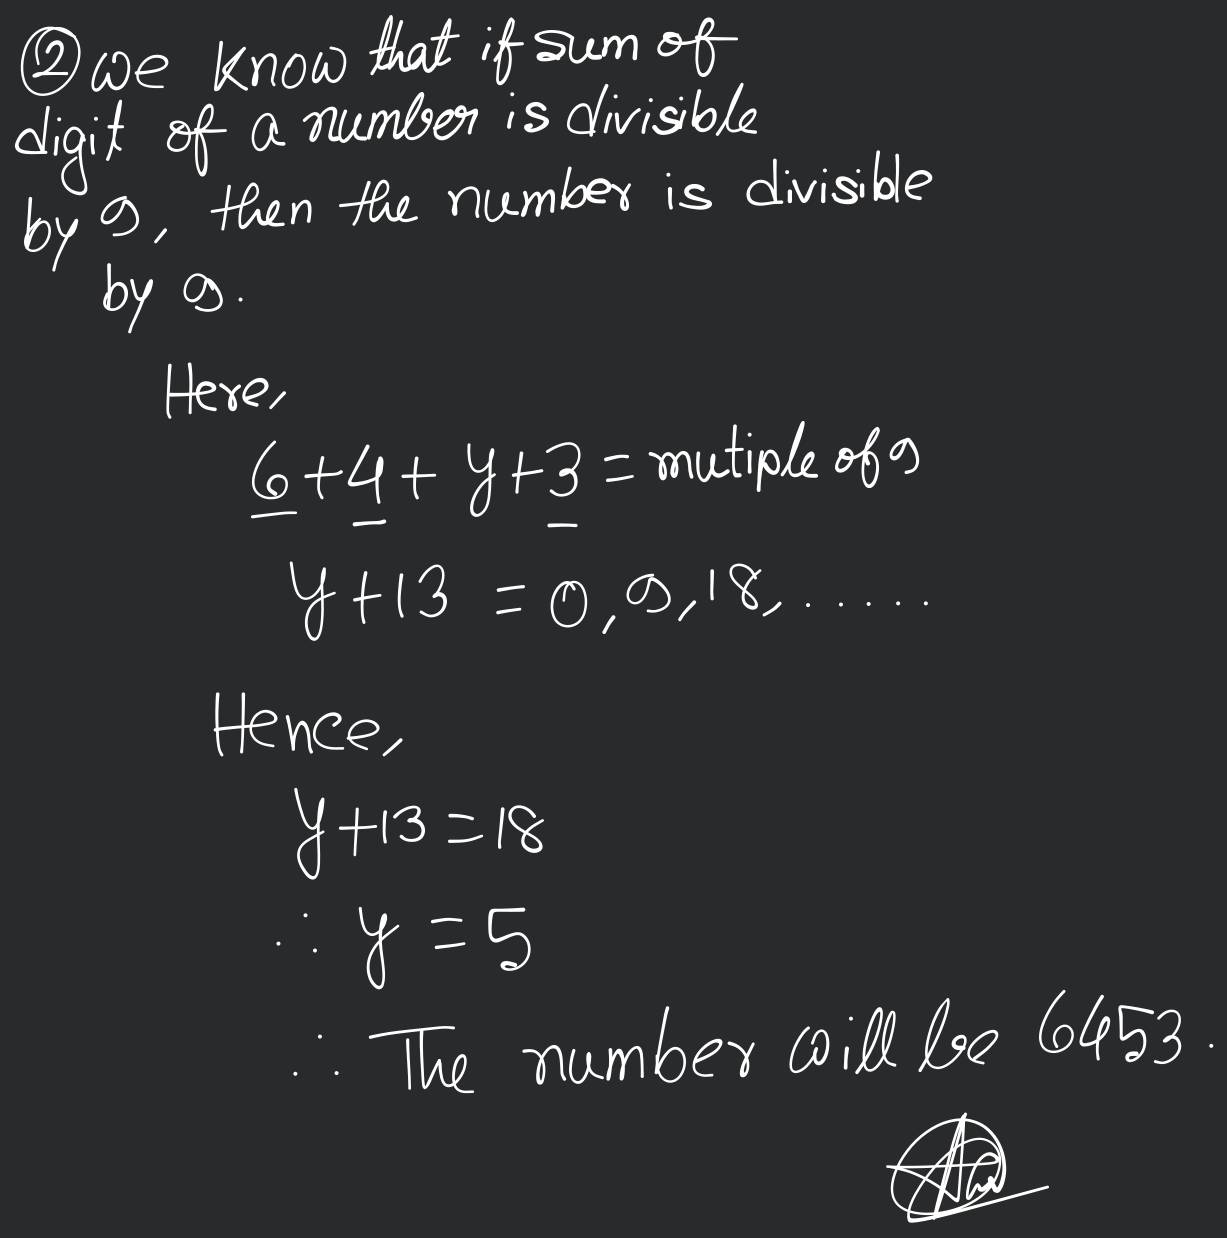 ② we know that if sum of
digit of a number is divisible
by 9, then the number is divisible
by 9.
Here,
6+4+ y+3 = mutiple of 9
y+13 = 0,9,18,.....
Hence,
y+13 = 18
∴ y = 5
∴ The number will be 6453.